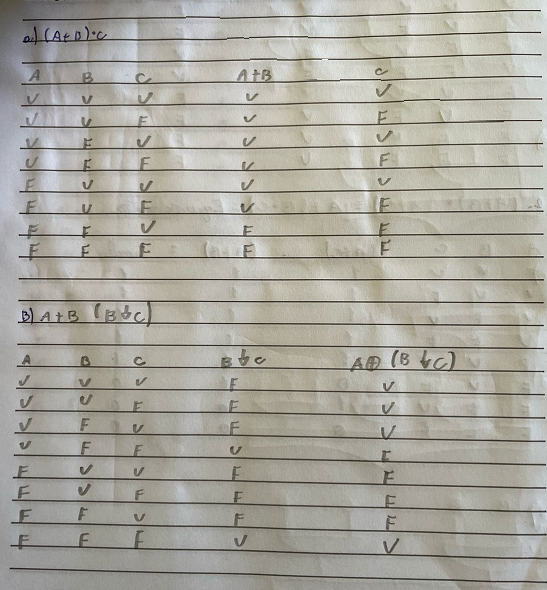 a) (A+B)·C
A B C A+B C
V V V V V
V V F V F
V F V V V
V F F V F
F V V V V
F V F V F
F F V F F
F F F F F
B) A+B (B↓C)
A B C B↓C A⊕(B↓C)
V V V F V
V V F F V
V F V F V
V F F V F
F V V F F
F V F F F
F F V F F
F F F V V